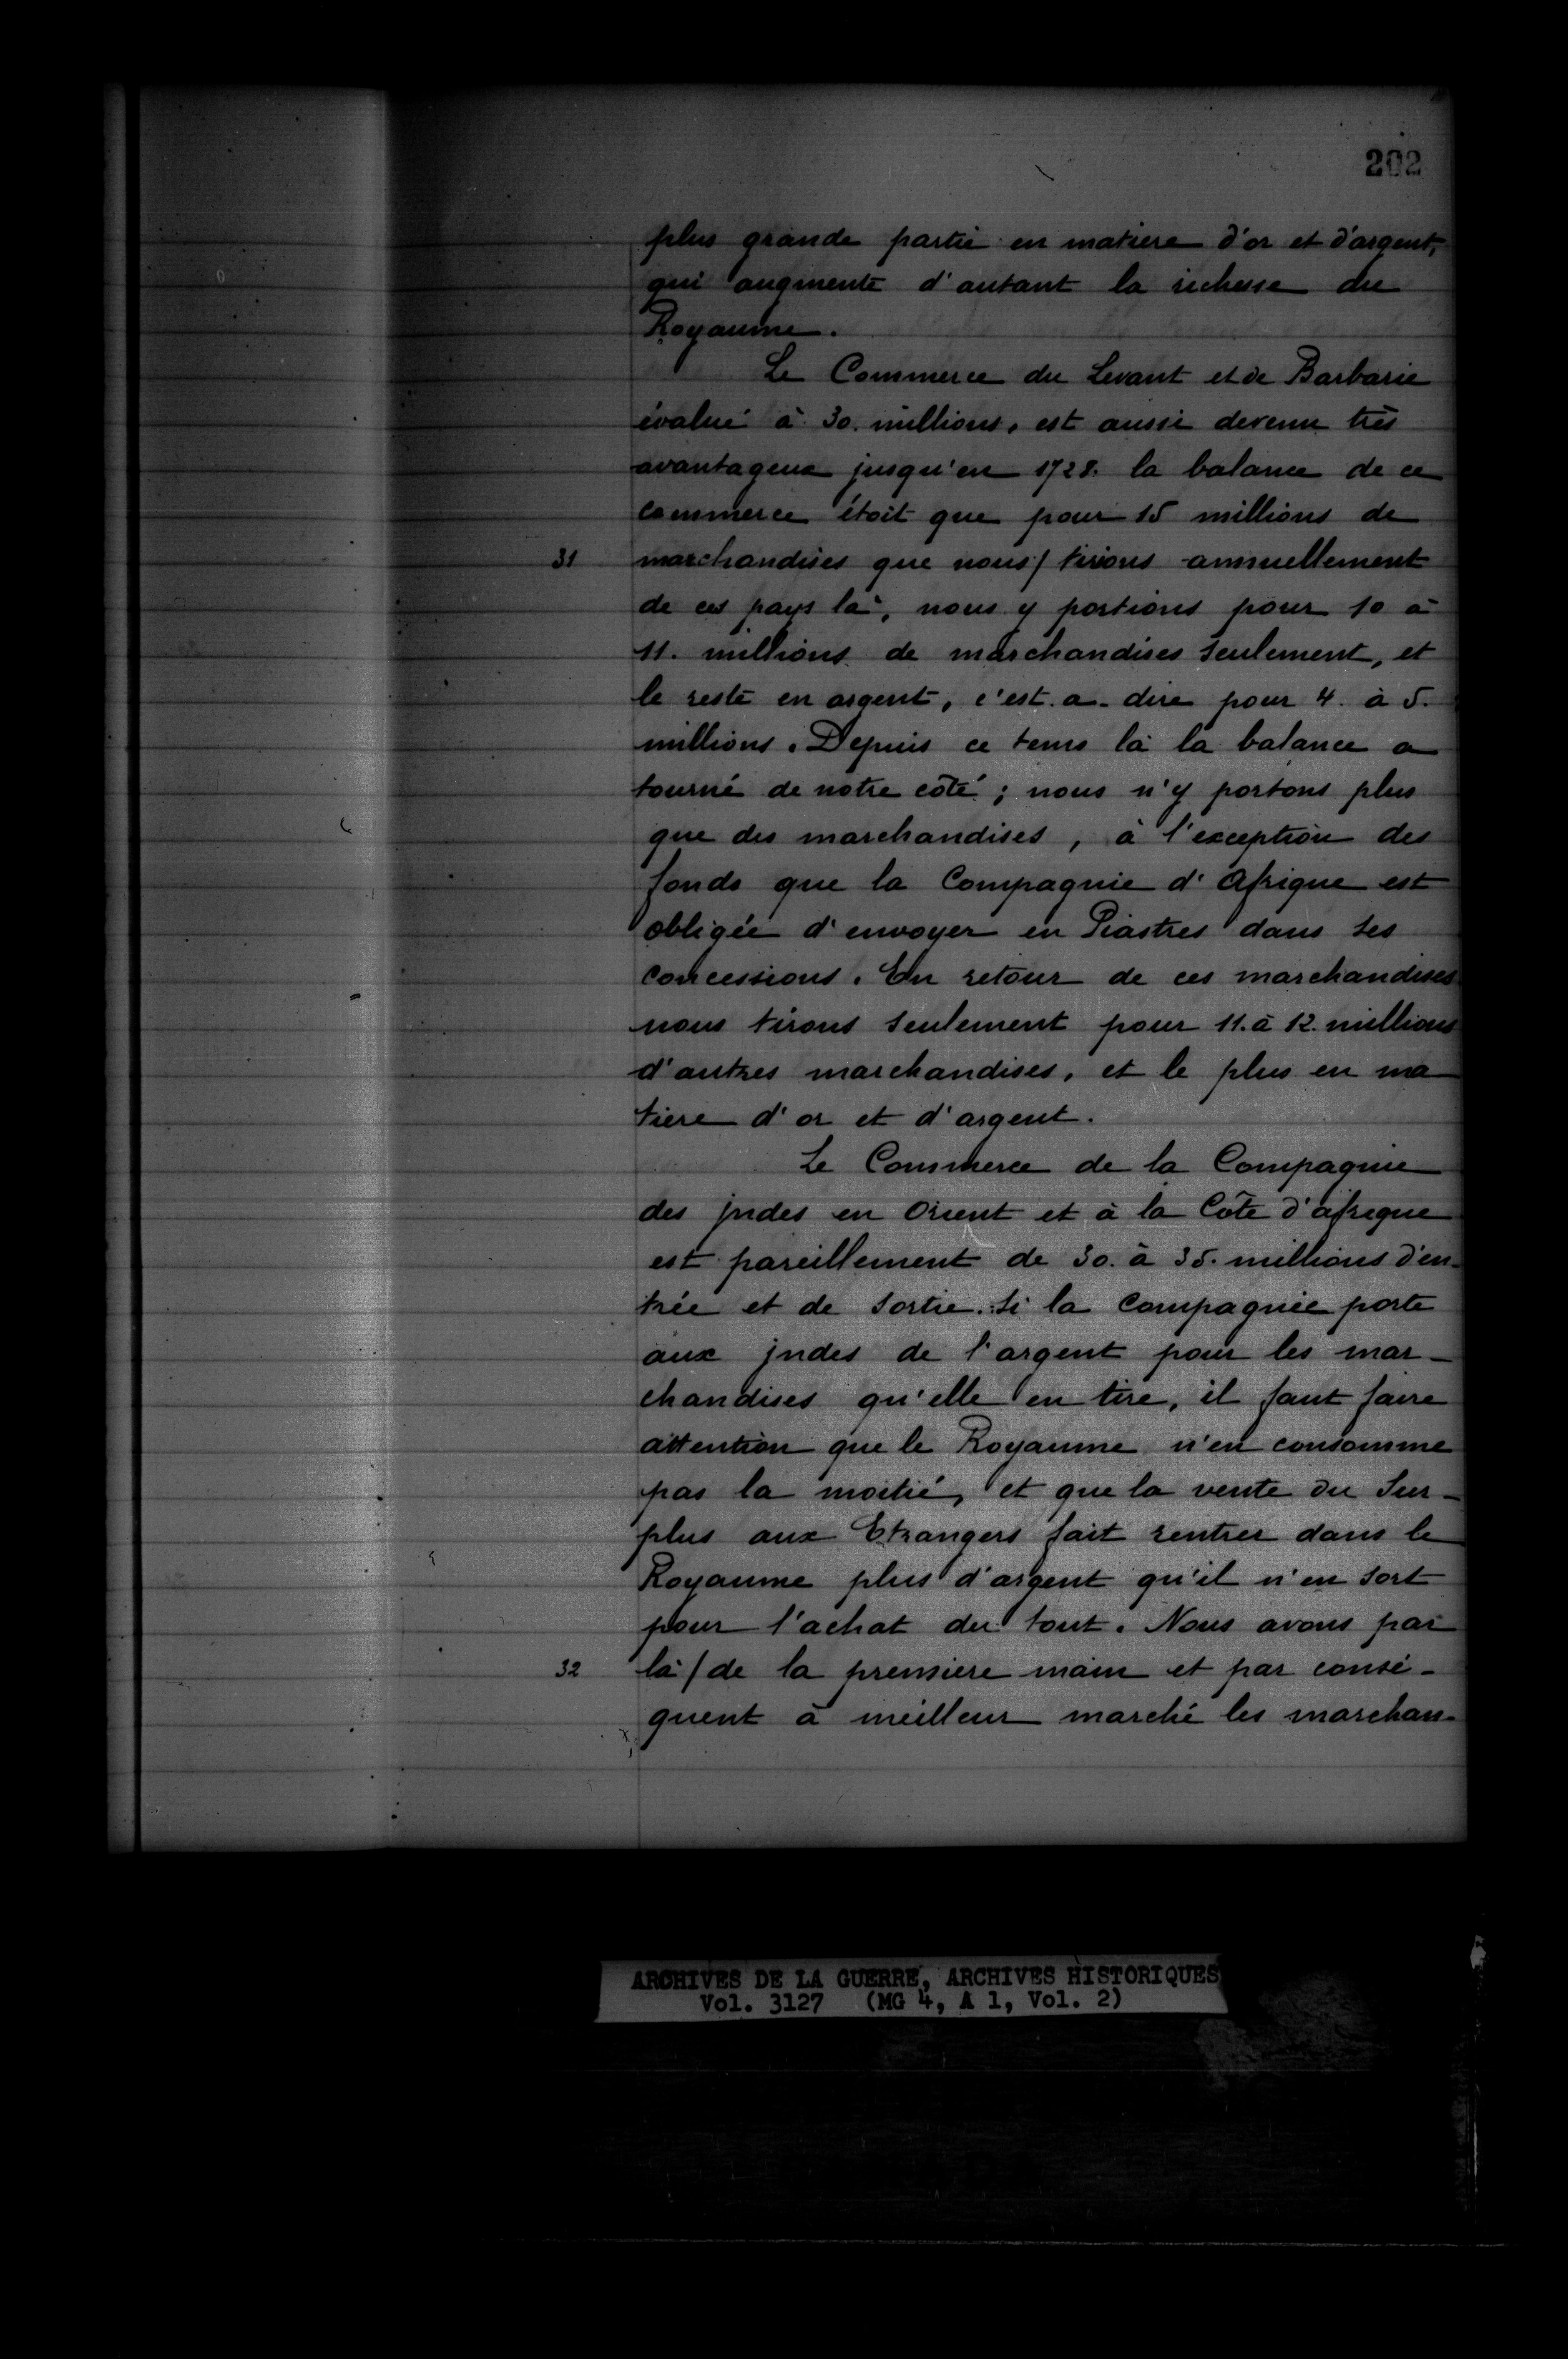 202
plus grande partie en matiere d'or et d'argent,
qui augmente d'autant la richesse du
Royaume.
Le Commerce du Levant et de Barbarie
évalué à 30. millions, est aussi devenu très
avantageux jusqu'en 1728. la balance de ce
commerce étoit que pour 15 millions de
31 marchandises que nous/ tirions annuellement
de ces pays là, nous y portions pour 10 à
11. millions de marchandises seulement, et
le reste en argent, c'est. a- dire pour 4. à 5.
millions. Depuis ce tems là la balance a
tourné de notre côté ; nous n'y portons plus
que des marchandises, à l'exception des
fonds que la Compagnie d'Afrique est
obligée d'envoyer en Piastres dans ses
concessions. En retour de ces marchandises
nous tirons seulement pour 11. à 12. millions
d'autres marchandises, et le plus en ma
tiere d'or et d'argent.
Le Commerce de la Compagnie
des jndes en Orient et à la Côte d'afrique
est pareillement de 30. à 35. millions d'en-
trée et de sortie. Si la Compagnie porte
aux jndes de l'argent pour les mar-
chandises qu'elle en tire, il faut faire
attention que le Royaume n'en consomme
pas la moitié, et que la vente du Sur-
plus aux Etrangers fait rentrer dans le
Royaume plus d'argent qu'il n'en sort
pour l'achat du tout. Nous avons par
32 là/de la premiere main et par consé-
quent à meilleur marché les marchan-
ARCHIVES DE LA GUERRE, ARCHIVES HISTORIQUES
Vol. 3127 (MG 4, A 1, Vol. 2)